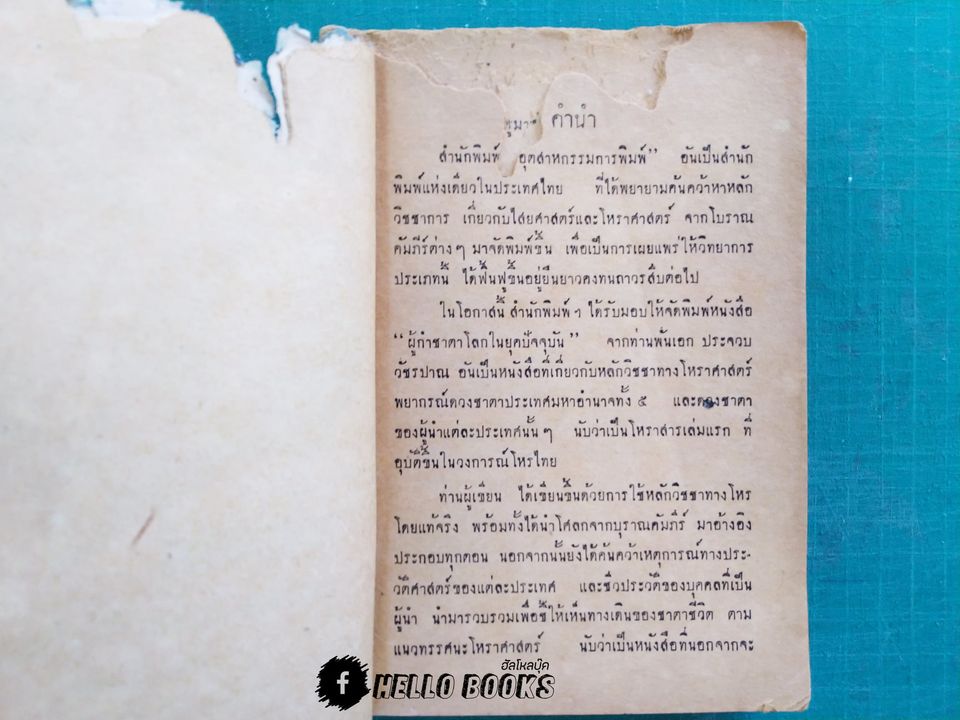 คำนำ
สำนักพิมพ์ อุตสาหกรรมการพิมพ์” อันเป็นสำนัก
พิมพ์แห่งเดียวในประเทศไทย ที่ได้พยายามค้นคว้าหาหลัก
วิชชาการ เกี่ยวกับไสยศาสตร์และโหราศาสตร์ จากโบราณ
คัมภีร์ต่าง ๆ มาจัดพิมพ์ขึ้น เพื่อเป็นการเผยแพร่ให้วิทยาการ
ประเภทนี้ ได้ฟื้นฟูขึ้นอยู่ยืนยาวคงทนถาวรสืบต่อไป
ในโอกาสนี้ สำนักพิมพ์ ฯ ได้รับมอบให้จัดพิมพ์หนังสือ
“ผู้กำชาตาโลกในยุคปัจจุบัน” จากท่านพันเอก ประจวบ
วัชรปาณ อันเป็นหนังสือที่เกี่ยวกับหลักวิชชาทางโหราศาสตร์
พยากรณ์ดวงชาตาประเทศมหาอำนาจทั้ง ๕ และดวงชาตา
ของผู้นำแต่ละประเทศนั้น ๆ นับว่าเป็นโหราสารเล่มแรก ที่
อุบัติขึ้นในวงการณ์โหรไทย
ท่านผู้เขียน ได้เขียนขึ้นด้วยการใช้หลักวิชชาทางโหร
โดยแท้จริง พร้อมทั้งได้นำโศลกจากบุราณคัมภีร์ มาอ้างอิง
ประกอบทุกตอน นอกจากนั้นยังได้ค้นคว้าเหตุการณ์ทางประ-
วัติศาสตร์ของแต่ละประเทศ และชีวประวัติของบุคคลที่เป็น
ผู้นำ นำมารวบรวมเพื่อชี้ให้เห็นทางเดินของชาตาชีวิต ตาม
แนวทรรศนะโหราศาสตร์ นับว่าเป็นหนังสือที่นอกจากจะ
ฮัลโหลบุ๊ค
f HELLO BOOKS